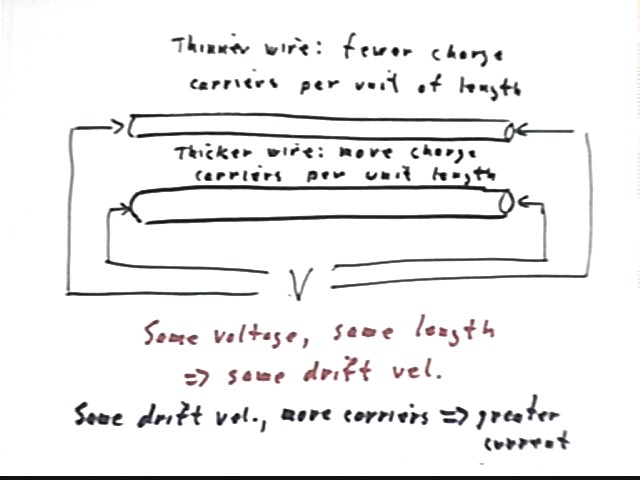 Thinner wire: fewer charge
carriers per unit of length
Thicker wire: more charge
carriers per unit length
V
Same voltage, same length
=> same drift vel.
Same drift vel., more carriers => greater
current